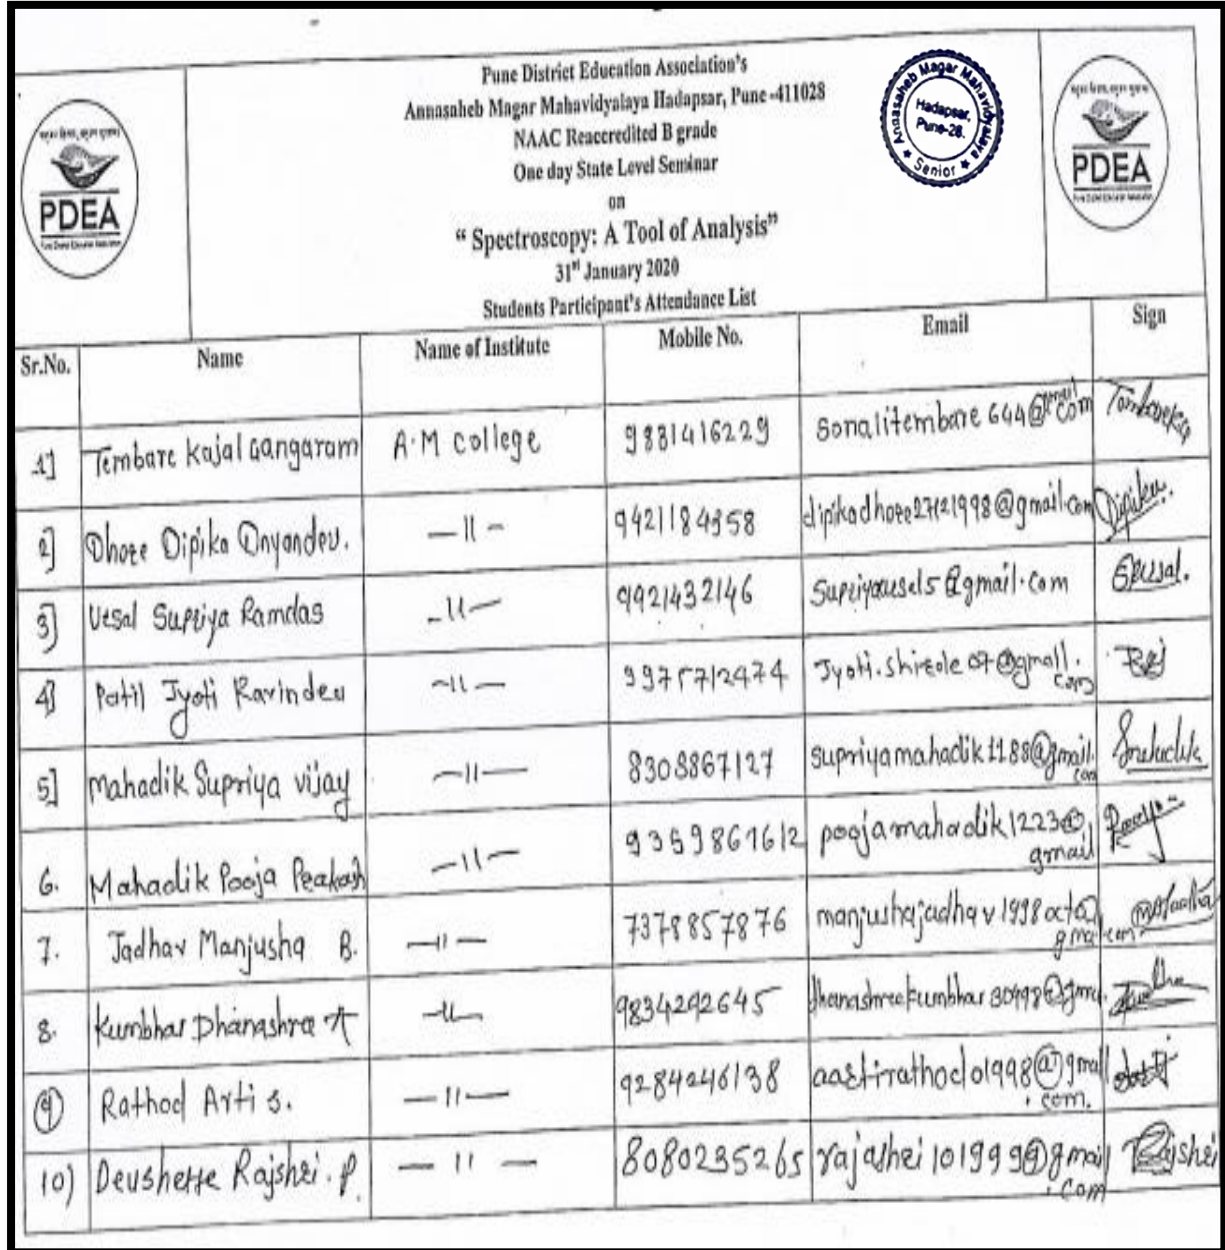 Pune District Education Association's
Annasaheb Magar Mahavidyalaya Hadapsar, Pune-411028
NAAC Reaccredited B grade
One day State Level Seminar
on
“ Spectroscopy: A Tool of Analysis”
31st January 2020
Students Participant's Attendance List
PDEA
Annasaheb Magar Mahavidyalaya
Hadapsar,
Pune-28.
★ Senior ★
PDEA
Sr.No. Name Name of Institute Mobile No. Email Sign
1] Tembare Kajal Gangaram A.M College 9881416229 sonalitembare644@gmail.com
2] Dhore Dipika Dnyandev. —11— 9421184358 dipikadhore27121998@gmail.com Dipika.
3] Uesal Supriya Ramdas —11— 9921432146 supriyausal5@gmail.com
4] Patil Jyoti Ravindra —11— 9975712474 Jyoti.shirole07@gmail.
com
5] Mahadik Supriya vijay —11— 8308867127 supriyamahadik1188@gmail.
com
6. Mahadik Pooja Prakash —11— 9359861612 poojamahadik1223@
gmail
7. Jadhav Manjusha B. —11— 7378857876 manjushajadhav1998oct@
gmail.com
8. Kumbhar Dhanashra A —11— 9834292645
9) Rathod Arti S. —11— 9284246138 aartirathod01998@gmail
.com.
10) Devshette Rajshri. P. —11— 8080235265 rajashri101999@gmail Rajshri
.com